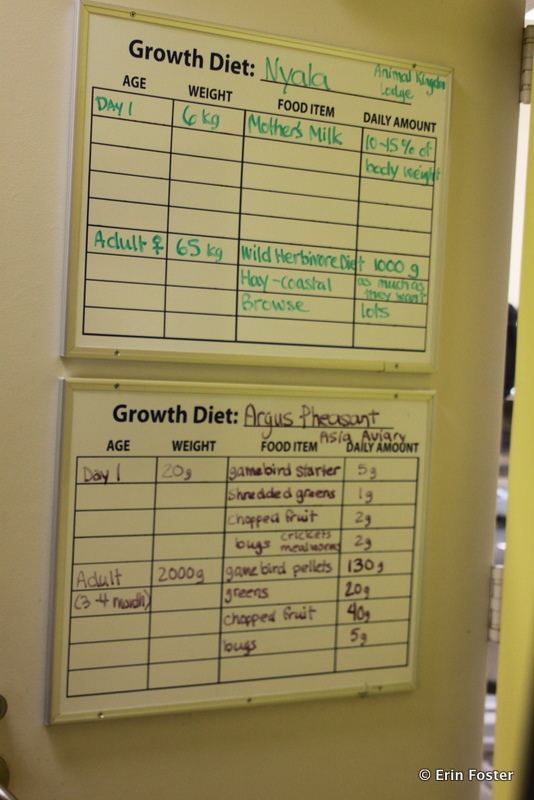 Growth Diet: Nyala
Animal Kingdom
Lodge
AGE WEIGHT FOOD ITEM DAILY AMOUNT
Day 1 6 kg Mothers Milk 10-15% of
body weight
Adult ♀ 65 kg Wild Herbivore Diet 1000 g
Hay-coastal as much as
they want
Browse lots
Growth Diet: Argus Pheasant
Asia Aviary
AGE WEIGHT FOOD ITEM DAILY AMOUNT
Day 1 20g gamebird starter 5g
shredded greens 1g
chopped fruit 2g
bugs crickets
mealworms 2g
Adult 2000g gamebird pellets 130g
(3-4 month) greens 20g
chopped fruit 40g
bugs 5g
© Erin Foster